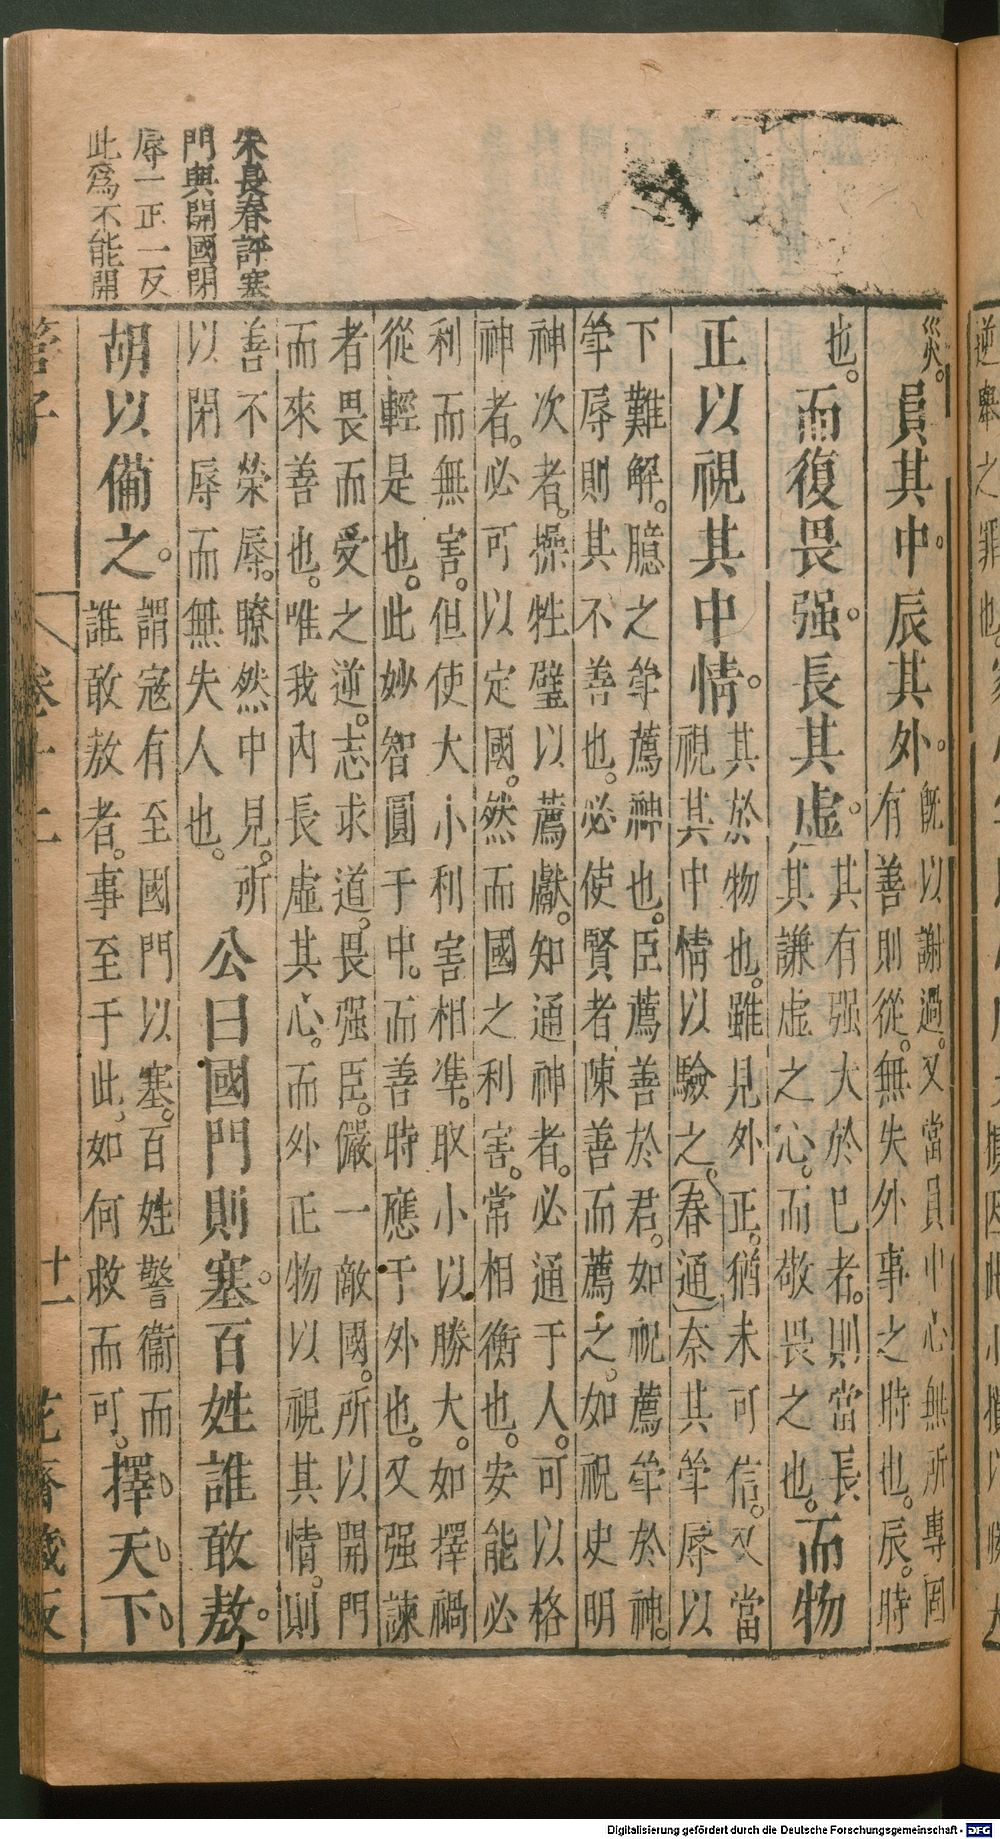 朱長春評塞
門與開國閉
辱一正一反
此爲不能開
災。員其中。辰其外。旣以謝過。又當員中心無所專固
有善則從。無失外事之時也。辰。時
也。而復畏强。長其虛。其有强大於已者。則當長
其謙虛之心。而敬畏之也。而物
正以視其中情。其於物也。雖見外正。猶未可信。又當
視其中情以驗之。(春通)奈其䇯辱以
下難解。臆之䇯薦神也。臣薦善於君。如祝薦䇯於神。
䇯辱則其不善也。必使賢者陳善而薦之。如祝史明
神次者。操牲璧以薦獻。知通神者。必通于人。可以格
神者。必可以定國。然而國之利害。常相衡也。安能必
利而無害。但使大小利害相凖。取小以勝大。如擇禍
從輕是也。此妙智圓于中。而善時應于外也。又强諫
者畏而受之逆。志求道。畏强臣。儼一敵國。所以開門
而來善也。唯我內長虛其心。而外正物以視其情。則
善不榮辱。瞭然中見。所
以閉辱而無失人也。公曰國門則塞。百姓誰敢敖。
胡以備之。謂寇有至國門以塞。百姓警衞而
誰敢敖者。事至于此。如何救而可。擇天下
管子
卷十二
十一
花齋藏板
Digitalisierung gefördert durch die Deutsche Forschungsgemeinschaft - DFG